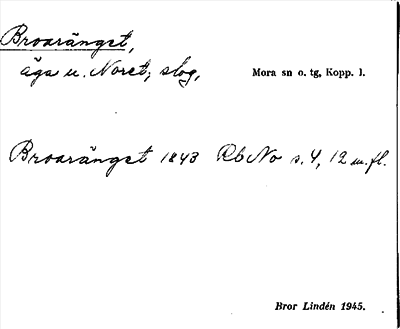 Broaränget,
äga u. Noret; slog,
Mora sn o. tg, Kopp. l.
Broaränget 1843 Rb No s. 4, 12 m. fl.
Bror Lindén 1945.